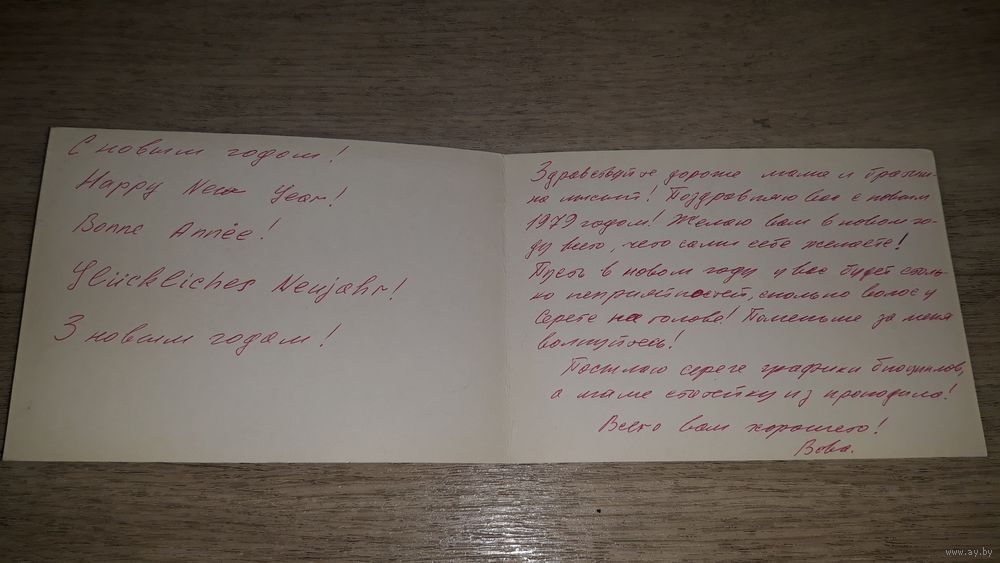 С новым годом!
Happy New Year!
Bonne Année!
Glückliches Neujahr!
З новым годам!
Здравствуйте дорогие мама и братиш-
ка лысый! Поздравляю вас с новым
1979 годом! Желаю вам в новом го-
ду всего, чего сами себе желаете!
Пусть в новом году у вас будет столь-
ко неприятностей, сколько волос у
Сереге на голове! Поменьше за меня
волнуйтесь!
Посылаю сереге графики биоциклов,
а маме статейку из крокодила!
Всего вам хорошего!
Вова.
www.ay.by